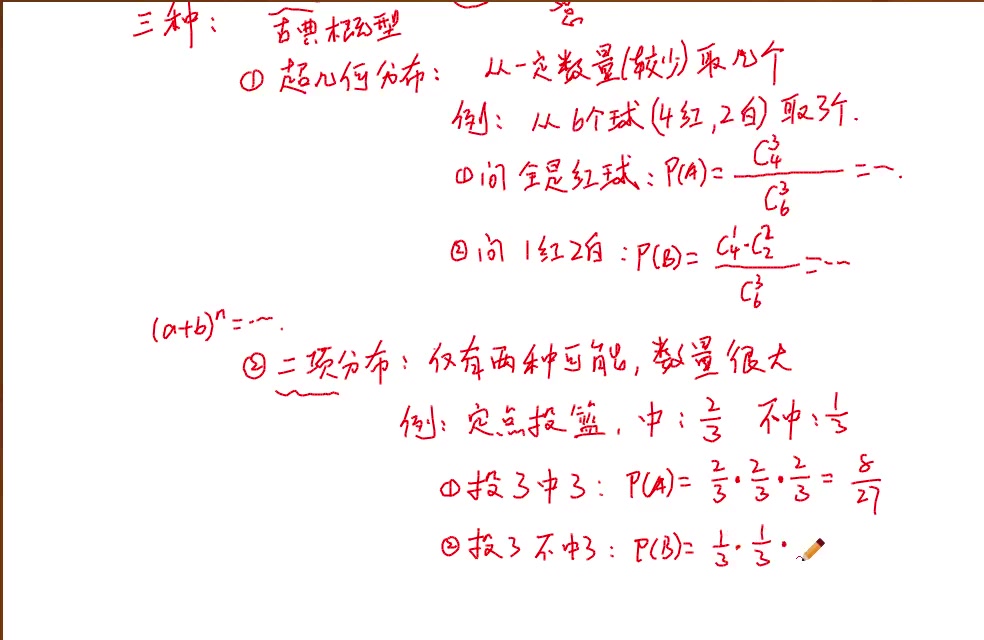 三种：古典概型
① 超几何分布：从一定数量(较少)取几个
例：从6个球(4红,2白)取3个.
①问全是红球：P(A)=C₄³/C₆³=….
②问1红2白：P(B)=C₄¹·C₂²/C₆³=…
(a+b)ⁿ=….
② 二项分布：仅有两种可能,数量很大
例：定点投篮,中：2/3 不中：1/3
①投3中3：P(A)=2/3·2/3·2/3=8/27
②投3不中3：P(B)=1/3·1/3·